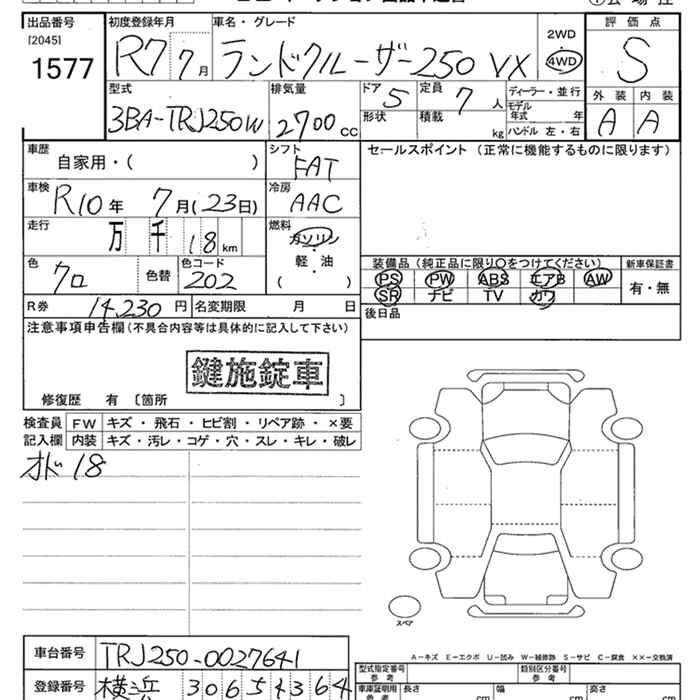 出品番号 初度登録年月 車名・グレード 2WD 評価点
[2045] R7 7月 ランドクルーザー250 VX 4WD S
1577
型式 排気量 ドア 定員 ディーラー・並行 外装 内装
3BA-TRJ250W 2700 CC 5 7人 モデル年式 年 A A
形状 積載 kg ハンドル 左・右
車歴 シフト セールスポイント(正常に機能するものに限ります)
自家用・( ) FAT
車検 冷房
R10年 7月(23日) AAC
走行 燃料
万 千 18 km ガソリン
軽・油
( )
色 色替 色コード 装備品(純正品に限り○をつけてください) 新車保証書
クロ 202 PS PW ABS エアB AW 有・無
SR ナビ TV カワ
R券 14,230円 名変期限 月 日 後日品
注意事項申告欄(不具合内容等は具体的に記入して下さい)
鍵施錠車
修復歴 有 〔箇所 〕
検査員 FW キズ・飛石・ヒビ割・リペア跡・×要
記入欄 内装 キズ・汚レ・コゲ・穴・スレ・キレ・破レ
オド 18
スペア
A-キズ E-エクボ U-凹み W-補修跡 S-サビ C-腐食 ××-交換済
車台番号 TRJ250-0027641 型式指定番号 参考 類別区分番号 参考
登録番号 横浜 306 車庫証明用 参考 長さ cm 幅 cm 高さ cm